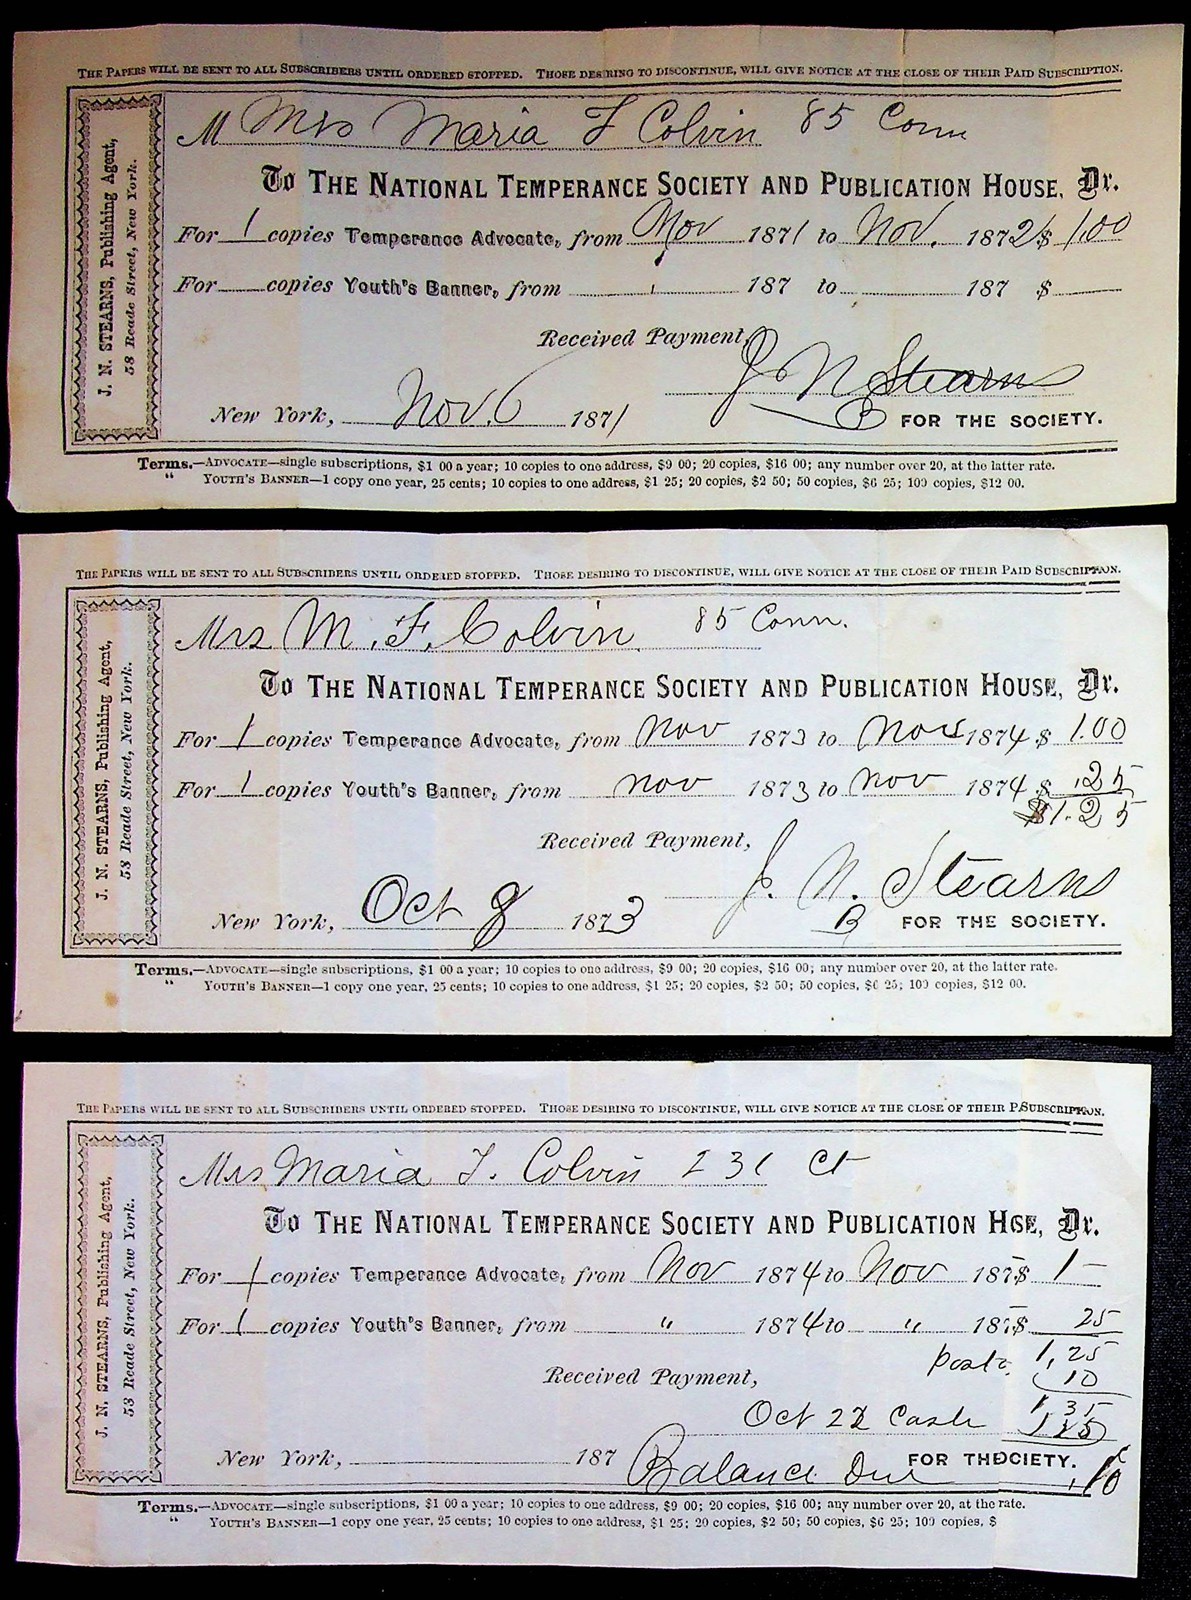 THE PAPERS WILL BE SENT TO ALL SUBSCRIBERS UNTIL ORDERED STOPPED. THOSE DESIRING TO DISCONTINUE, WILL GIVE NOTICE AT THE CLOSE OF THEIR PAID SUBSCRIPTION.
J. N. STEARNS, Publishing Agent,
58 Reade Street, New York.
M Mrs Maria F Colvin 85 Conn
To THE NATIONAL TEMPERANCE SOCIETY AND PUBLICATION HOUSE, Dr.
For 1 copies Temperance Advocate, from Nov 1871 to Nov. 1872 $ 1.00
For copies Youth's Banner, from 187 to 187 $
Received Payment,
J N Stearns
New York, Nov. 6 1871 B FOR THE SOCIETY.
Terms.—ADVOCATE—single subscriptions, $1 00 a year; 10 copies to one address, $9 00; 20 copies, $16 00; any number over 20, at the latter rate.
" YOUTH'S BANNER—1 copy one year, 25 cents; 10 copies to one address, $1 25; 20 copies, $2 50; 50 copies, $6 25; 100 copies, $12 00.
THE PAPERS WILL BE SENT TO ALL SUBSCRIBERS UNTIL ORDERED STOPPED. THOSE DESIRING TO DISCONTINUE, WILL GIVE NOTICE AT THE CLOSE OF THEIR PAID SUBSCRIPTION.
J. N. STEARNS, Publishing Agent,
58 Reade Street, New York.
Mrs M. F. Colvin 85 Conn.
To THE NATIONAL TEMPERANCE SOCIETY AND PUBLICATION HOUSE, Dr.
For 1 copies Temperance Advocate, from Nov 1873 to Nov 1874 $ 1.00
For 1 copies Youth's Banner, from Nov 1873 to Nov 1874 $ .25
$1.25
Received Payment,
J. N. Stearns
New York, Oct 8 1873 B FOR THE SOCIETY.
Terms.—ADVOCATE—single subscriptions, $1 00 a year; 10 copies to one address, $9 00; 20 copies, $16 00; any number over 20, at the latter rate.
" YOUTH'S BANNER—1 copy one year, 25 cents; 10 copies to one address, $1 25; 20 copies, $2 50; 50 copies, $6 25; 100 copies, $12 00.
THE PAPERS WILL BE SENT TO ALL SUBSCRIBERS UNTIL ORDERED STOPPED. THOSE DESIRING TO DISCONTINUE, WILL GIVE NOTICE AT THE CLOSE OF THEIR P.SUBSCRIPTION.
J. N. STEARNS, Publishing Agent,
58 Reade Street, New York.
Mrs Maria F. Colvin 231 Ct
To THE NATIONAL TEMPERANCE SOCIETY AND PUBLICATION HSE, Dr.
For 1 copies Temperance Advocate, from Nov 1874 to Nov 1875 $ 1—
For 1 copies Youth's Banner, from " 1874 to " 1875 $ 25
1,25
Received Payment, post. 10
1.35
Oct 22 Cash 1.25
New York, 187 Balance Due FOR THE OCIETY. .10
Terms.—ADVOCATE—single subscriptions, $1 00 a year; 10 copies to one address, $9 00; 20 copies, $16 00; any number over 20, at the rate.
" YOUTH'S BANNER—1 copy one year, 25 cents; 10 copies to one address, $1 25; 20 copies, $2 50; 50 copies, $6 25; 100 copies, $